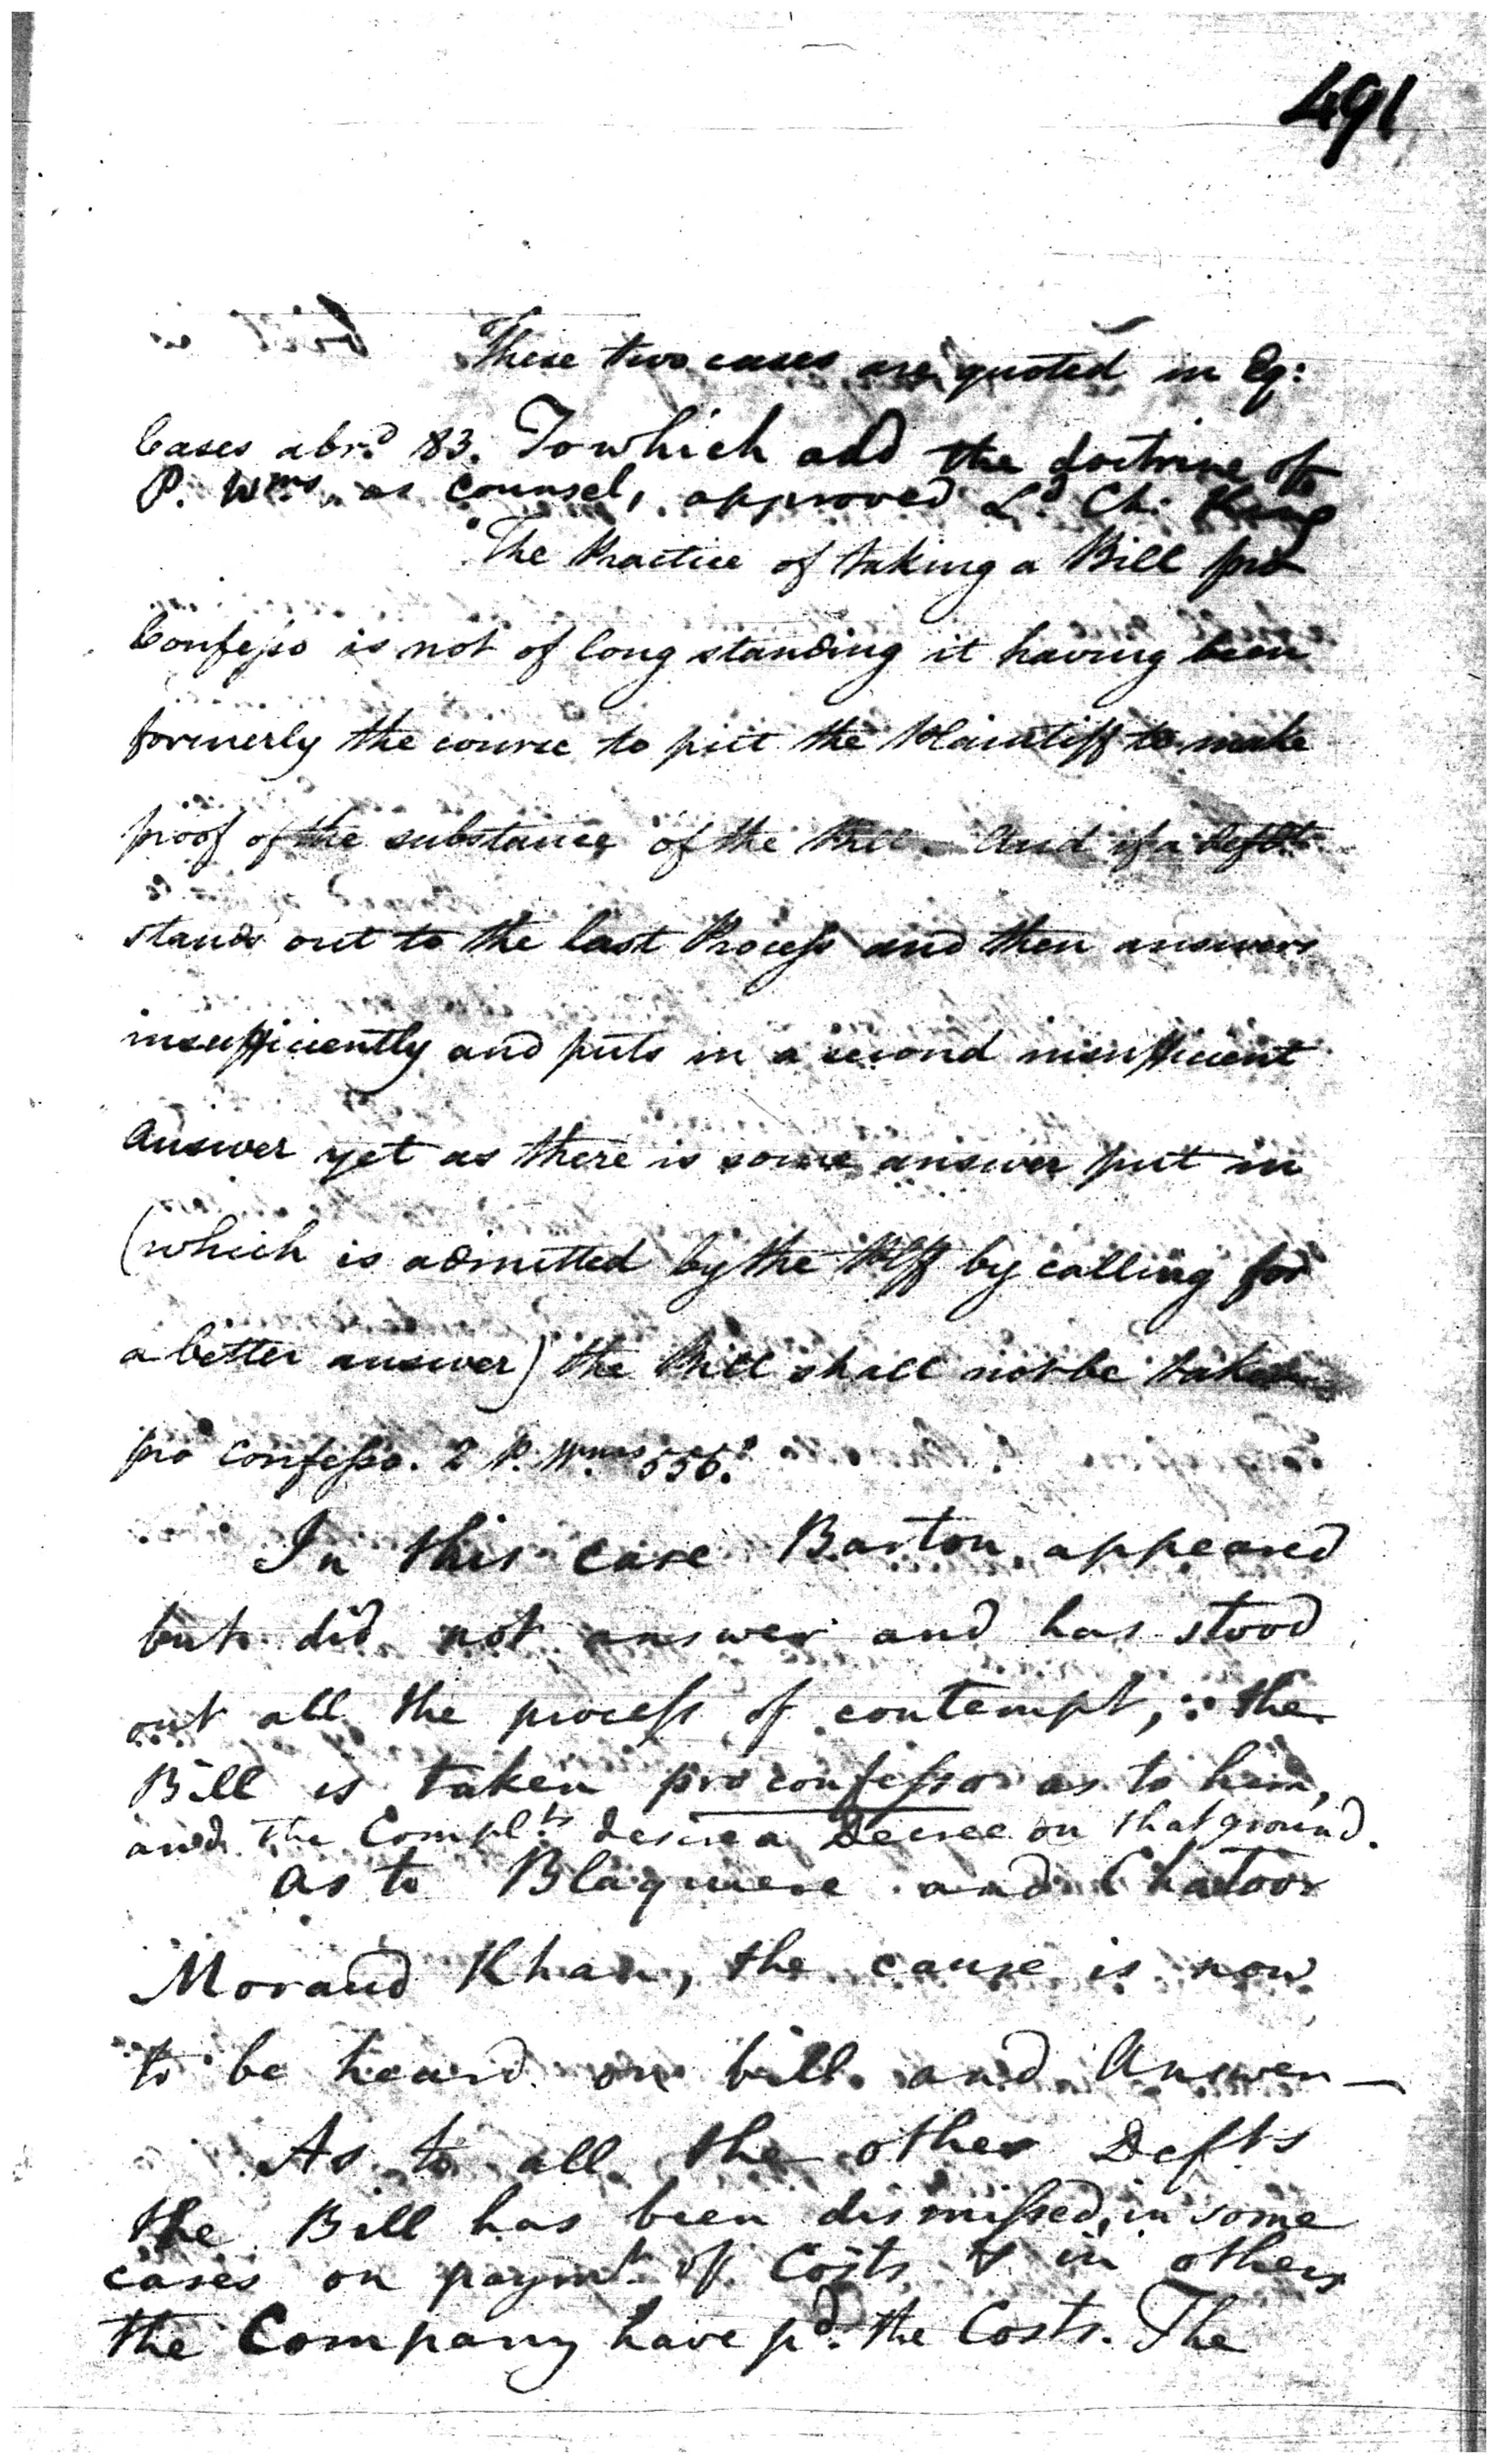 491
These two cases are quoted in Eq:
Cases abrd. 83. To which add the doctrine of
P. Wms. as counsel, approved Ld. Ch: King
The Practice of taking a Bill pro
Confesso is not of long standing it having been
formerly the course to put the Plaintiff to make
proof of the substance of the Bill. And if a Deft
stands out to the last Process and then answers
insufficiently and puts in a second insufficient
answer yet as there is some answer put in
(which is admitted by the Plff by calling for
a better answer) the Bill shall not be taken
pro confesso. 2 P. Wms. 556.
In this case Barton appeared
but did not answer and has stood
out all the process of contempt, ∴ the
Bill is taken pro confesso as to him,
and the Complts. desire a Decree on that ground.
As to Blaquiere and Chatoor
Moraud Khan, the cause is now
to be heard on bill and Answer —
As to all the other Defts
the Bill has been dismissed, in some
cases on paymt. of Costs & in others
the Company have pd. the Costs. The